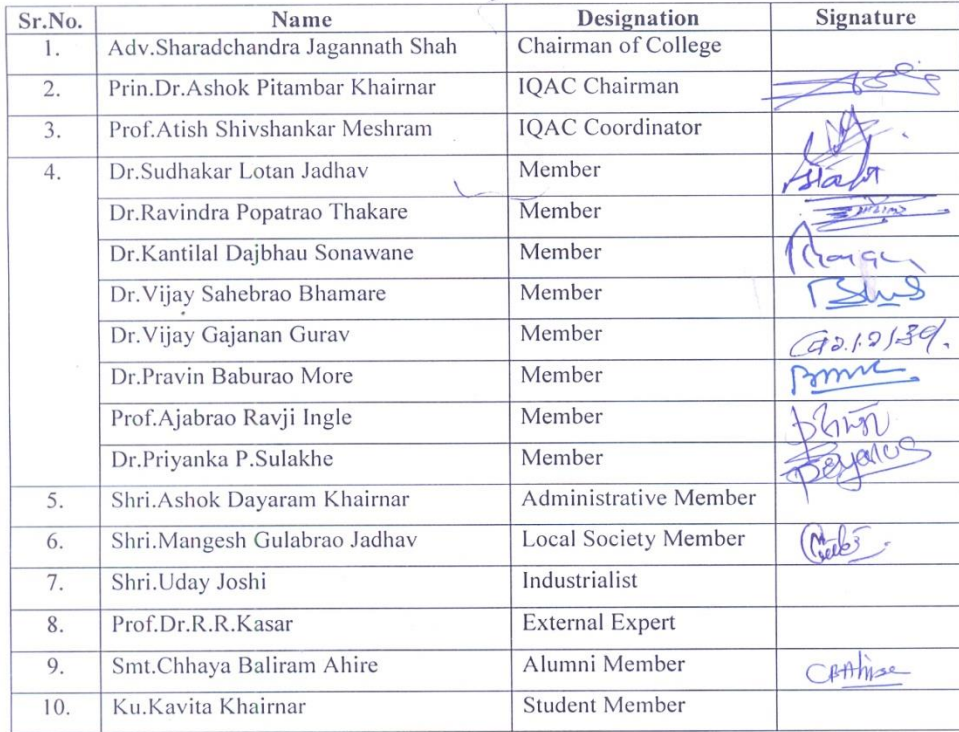 Sr.No. Name Designation Signature
1. Adv.Sharadchandra Jagannath Shah Chairman of College
2. Prin.Dr.Ashok Pitambar Khairnar IQAC Chairman
3. Prof.Atish Shivshankar Meshram IQAC Coordinator
4. Dr.Sudhakar Lotan Jadhav Member
Dr.Ravindra Popatrao Thakare Member
Dr.Kantilal Dajbhau Sonawane Member
Dr.Vijay Sahebrao Bhamare Member
Dr.Vijay Gajanan Gurav Member
Dr.Pravin Baburao More Member
Prof.Ajabrao Ravji Ingle Member
Dr.Priyanka P.Sulakhe Member
5. Shri.Ashok Dayaram Khairnar Administrative Member
6. Shri.Mangesh Gulabrao Jadhav Local Society Member
7. Shri.Uday Joshi Industrialist
8. Prof.Dr.R.R.Kasar External Expert
9. Smt.Chhaya Baliram Ahire Alumni Member CBAhire
10. Ku.Kavita Khairnar Student Member